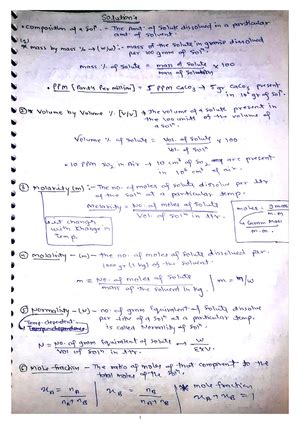 Solutions
* Composition of a Solⁿ. - The Amt. of Solute dissolved in a particular
amt of solvent.
* mass by mass % → (w/w) :- mass of the solute in grams dissolved
per 100 gram of Solⁿ.
mass % of Solute = mass of solute / mass of solution × 100
* PPM [Parts Per Million] → 5 ppm CaCO₃ → 5 gr CaCO₃ present
in 10⁶ gr of Solⁿ.
② * Volume by Volume % [v/v] → The volume of a solute present in
the 100 units of the volume of
a solⁿ.
Volume % of Solute = Vol. of Solute / Vol. of Solⁿ × 100
* 10 ppm SO₂ in Air → 10 cm³ of SO₂ are present
in 10⁶ cm³ of air.
③ Molarity [M] :- The no. of moles of solute dissolve per ltr
of the Solⁿ at a particular temp.
Molarity = No. of moles of Solute / Vol. of Solⁿ in ltr.
moles = mass / m.m.
→ Gram Mass / m.m.
It changes
with change in
Temp.
④ Molality - (m) - the no. of moles of solute dissolved per
1000 gr (1 kg) of the solvent.
m = No. of moles of solute / mass of the solvent in kg. | m = n/w
⑤ Normality - (N) - no. of gram Equivalent of Solute dissolve
per ltr of a solⁿ at a particular temp.
is called Normality of Solⁿ.
Temp. dependent
N = No. of gram Equivalent of Solute / Vol of Solⁿ in ltr.
⑥ Mole fraction - The ratio of moles of that component to the
total moles of the Solⁿ.
xB = nB / nA + nB | xA = nA / nA + nB
* mole fraction
xA + xB = 1